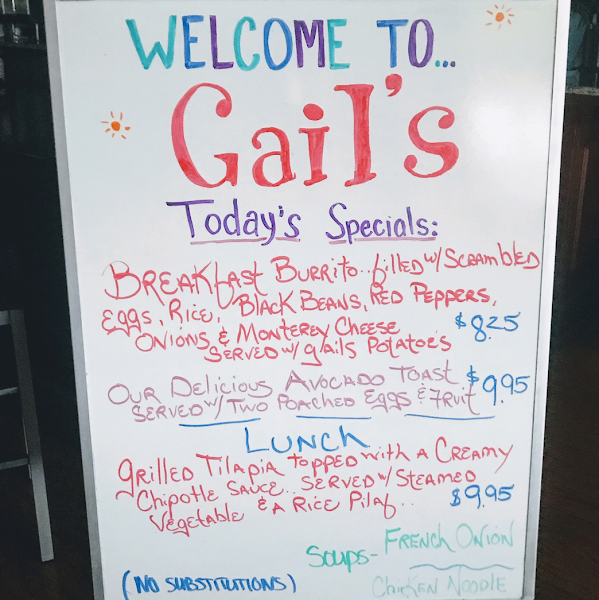 WELCOME TO...
Gail's
Today's Specials:
BREAKfast BURRITO...filled w/ SCRAMBLED
Eggs, Rice, BLACK BEANS, RED PEPPERS,
ONIONS & MONTEREY CHEESE $8.25
SERVED w/ gails Potatoe's
OUR DELICIOUS AVOCADO TOAST $9.95
SERVED w/ TWO POACHED Eggs & FRUIT
LUNCH
gRILLED TILAPIA topped with a CREAMY
Chipotle Sauce.. SERVED w/ STEAMED
Vegetable & A Rice Pilaf.. $9.95
Soups- FRENCH ONION
CHICKEN NOODLE
(NO SUBSTITUTIONS)